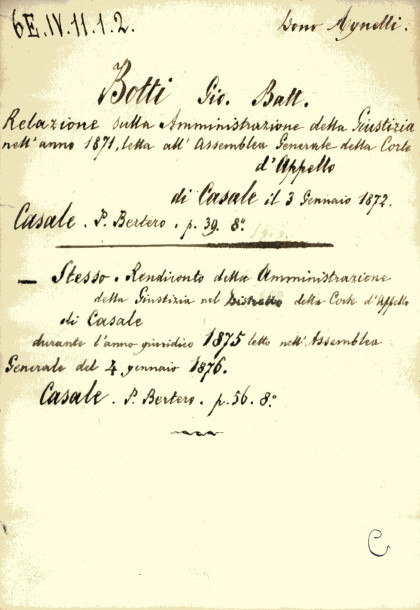 6E.IV.11.1.2. Dono Agnelli.
Botti Gio. Batt.
Relazione sulla Amministrazione della Giustizia
nell'anno 1871, letta all'Assemblea Generale della Corte
d'Appello
di Casale il 3 Gennaio 1872.
Casale. P. Bertero. p. 39. 8º.
— Stesso. Rendiconto della Amministrazione
della Giustizia nel Distretto della Corte d'Appello
di Casale
durante l'anno giuridico 1875 letto nell'Assemblea
Generale del 4 gennaio 1876.
Casale. P. Bertero. p. 56. 8º
C